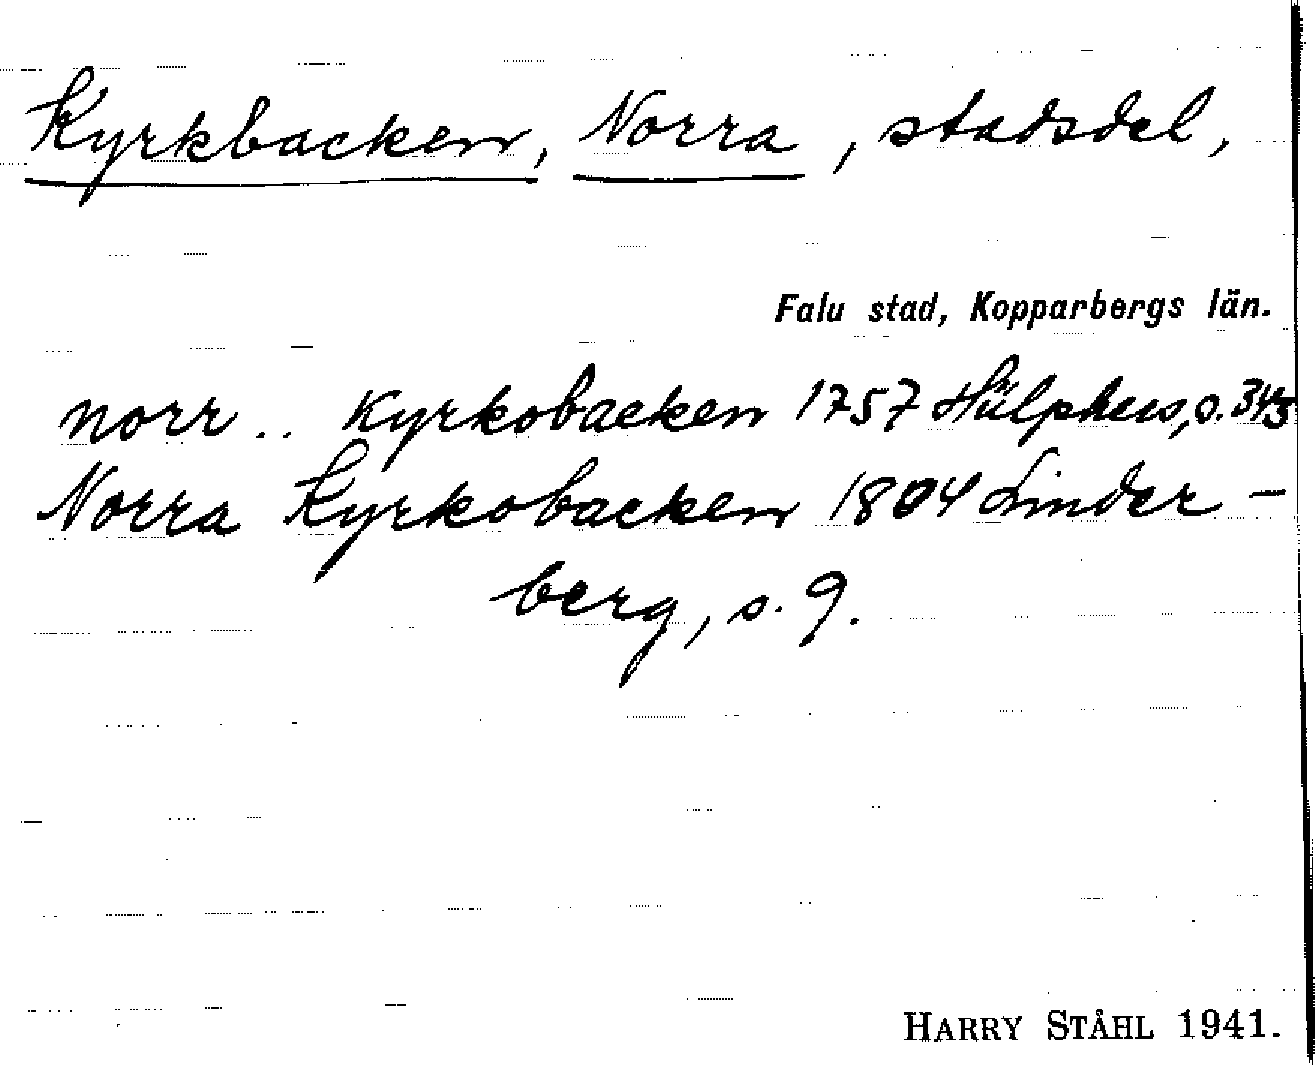 Kyrkbacken, Norra, stadsdel,
Falu stad, Kopparbergs län.
norr .. kyrkobacken 1757 Hülphers, s. 343
Norra Kyrkobacken 1804 Linder-
berg, s. 9.
HARRY STÅHL 1941.